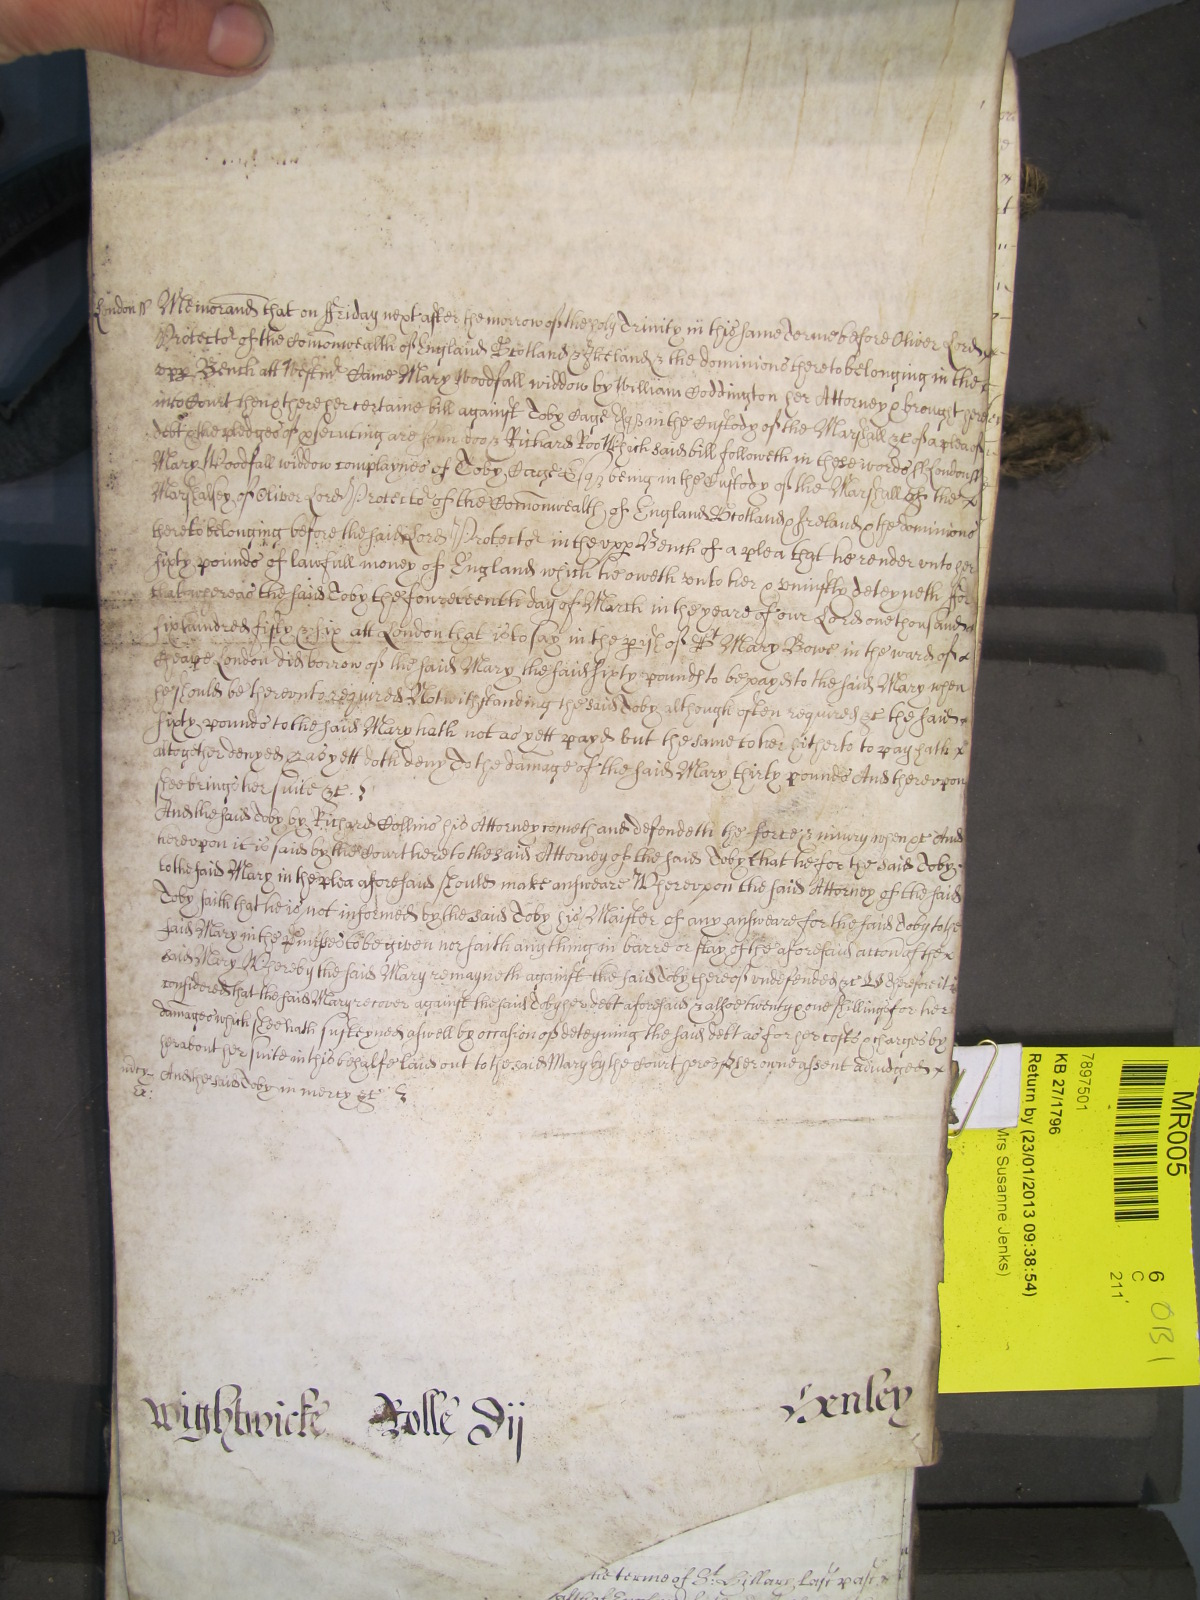 London ss Memorand that on ffriday next after the morrow of the holy Trinity in this same Terme before Oliver Lord
Protector of the Comonwealth of England Scotland & Ireland & the dominions thereto belonging in the
upp Bench att Westmr Came Mary Woodfall widdow by William Coddington her Attorney & brought here
into Court then & there her certaine bill against Toby Cage Esq in the Custody of the Marshall &c of a plea of
debt & the pledges of prsecuting are John Doo & Richard Roo Which said bill followeth in these words ss London ss
Mary Woodfall widdow complaynes of Toby Cage Esq being in the Custody of the Marshall of the
Marshalsey of Oliver Lord Protector of the Comonwealth of England Scotland & Ireland & the dominions
thereto belonging before the said Lord Protector in the upp Bench of a plea that he render unto her
sixty pounds of lawfull money of England which he oweth unto her & uniustly deteyneth ffor
that whereas the said Toby the fourteenth day of March in the yeare of our Lord one thousand
six hundred fifty & six att London that is to say in the prish of St Mary Bowe in the ward of
Cheape London did borrow of the said Mary the said sixty pounds to be payd to the said Mary when
he should be thereunto required Notwithstanding the said Toby although often required &c the said
sixty pounds to the said Mary hath not as yett payd but the same to her hitherto to pay hath
altogether denyed & as yett doth deny To the damage of the said Mary thirty pounds And thereupon
shee brings her suite &c.
And the said Toby by Richard Collins his Attorney cometh and defendeth the force & iniury when &c And
hereupon it is said by the Court here to the said Attorney of the said Toby that he for the said Toby
to the said Mary in the plea aforesaid should make answeare Whereupon the said Attorney of the said
Toby saith that he is not informed by the said Toby his Maister of any answeare for the said Toby to the
said Mary in the prmises to be given nor saith any thing in barre or stay of the aforesaid accon of the
said Mary Whereby the said Mary remayneth against the said Toby thereof undefended &c Therefore it is
considered that the said Mary recover against the said Toby her debt aforesaid & alsoe twenty & one shillings for her
damages which shee hath susteyned aswell by occasion of deteyning the said debt as for her costs & charges by
her about her suite in this behalfe laid out to the said Mary by the Court here & her owne assent adiudged
mercy And the said Toby in mercy &c
&c:
Wightwicke Rolle Dij Henley
the terme of St. Hillary last past
MR005
6
C
211
OB1
7897501
KB 27/1796
Return by (23/01/2013 09:38:54)
Mrs Susanne Jenks)